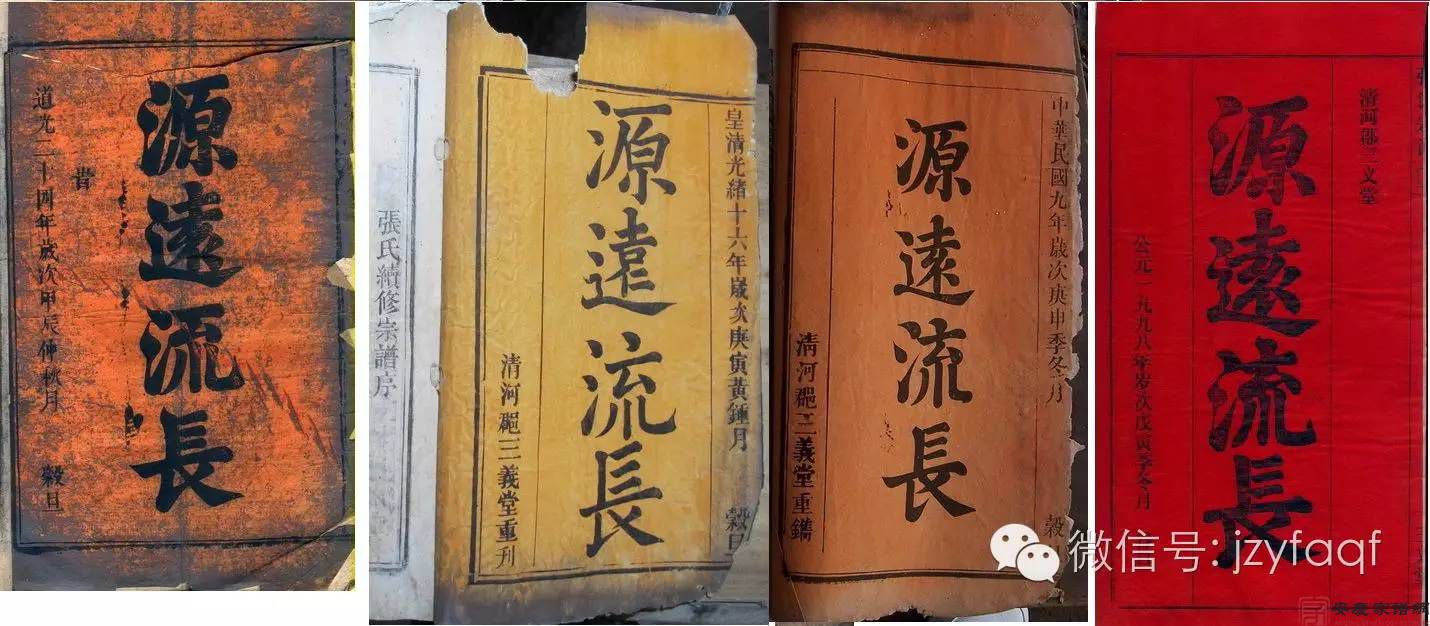 源遠流長
旹
道光二十四年歲次甲辰仲秋月 穀旦
皇清光緒十六年歲次庚寅黃鍾月 穀旦
源遠流長
清河郡三義堂重刊
張氏續修宗譜序
中華民國九年歲次庚申季冬月 穀
源遠流長
清河郡三義堂重鐫
清河郡三义堂
源遠流長
公元一九九八年岁次戊寅季冬月
微信号: jzyfaqf
安慶家譜網